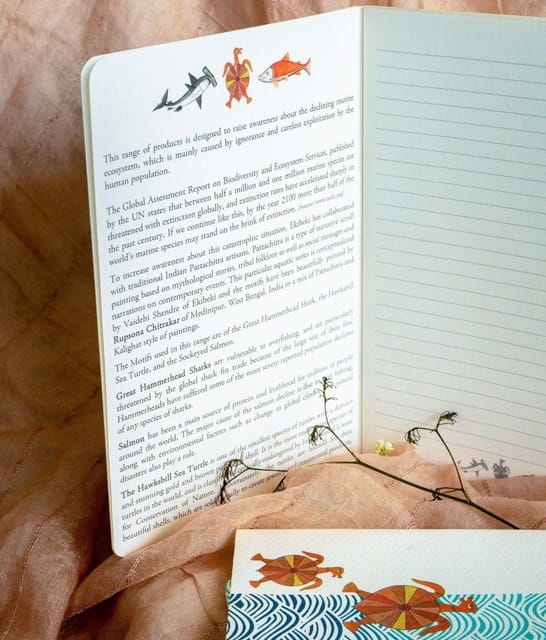 This range of products is designed to raise awareness about the declining marine
ecosystem, which is mainly caused by ignorance and careless exploitation by the
human population.
The Global Assessment Report on Biodiversity and Ecosystem Services, published
by the UN states that between half a million and one million marine species are
threatened with extinction globally, and extinction rates have accelerated sharply in
the past century. If we continue like this, by the year 2100 more than half of the
world's marine species may stand on the brink of extinction.
To increase awareness about this catastrophic situation, Ekibeki has collaborated
with traditional Indian Pattachitra artisans. Pattachitra is a type of narrative scroll
painting based on mythological stories, tribal folklore as well as social messages and
narrations on contemporary events. This particular aquatic series is conceptualized
by Vaidehi Shendre of Ekibeki and the motifs have been beautifully painted by
Rupsona Chitrakar of Medinipur, West Bengal, India in a mix of Pattachitra and
Kalighat style of paintings.
The Motifs used in this range are of the Great Hammerhead Shark, the Hawksbill
Sea Turtle, and the Sockeyed Salmon.
Great Hammerhead Sharks are vulnerable to overfishing, and are particularly
threatened by the global shark fin trade because of the large size of their fins.
Hammerheads have suffered some of the most severe reported population declines
of any species of sharks.
Salmon has been a main source of protein and livelihood for millions of people
around the world. The major cause of the salmon decline is due to over fishing,
along with environmental factors such as change in global climate
disasters also play a role.
The Hawksbill Sea Turtle is one of the smallest species of turtles with
and stunning gold and brown shell. It is the most
turtles in the world, and is endangered
for Conservation of Nature
beautiful shells, which are